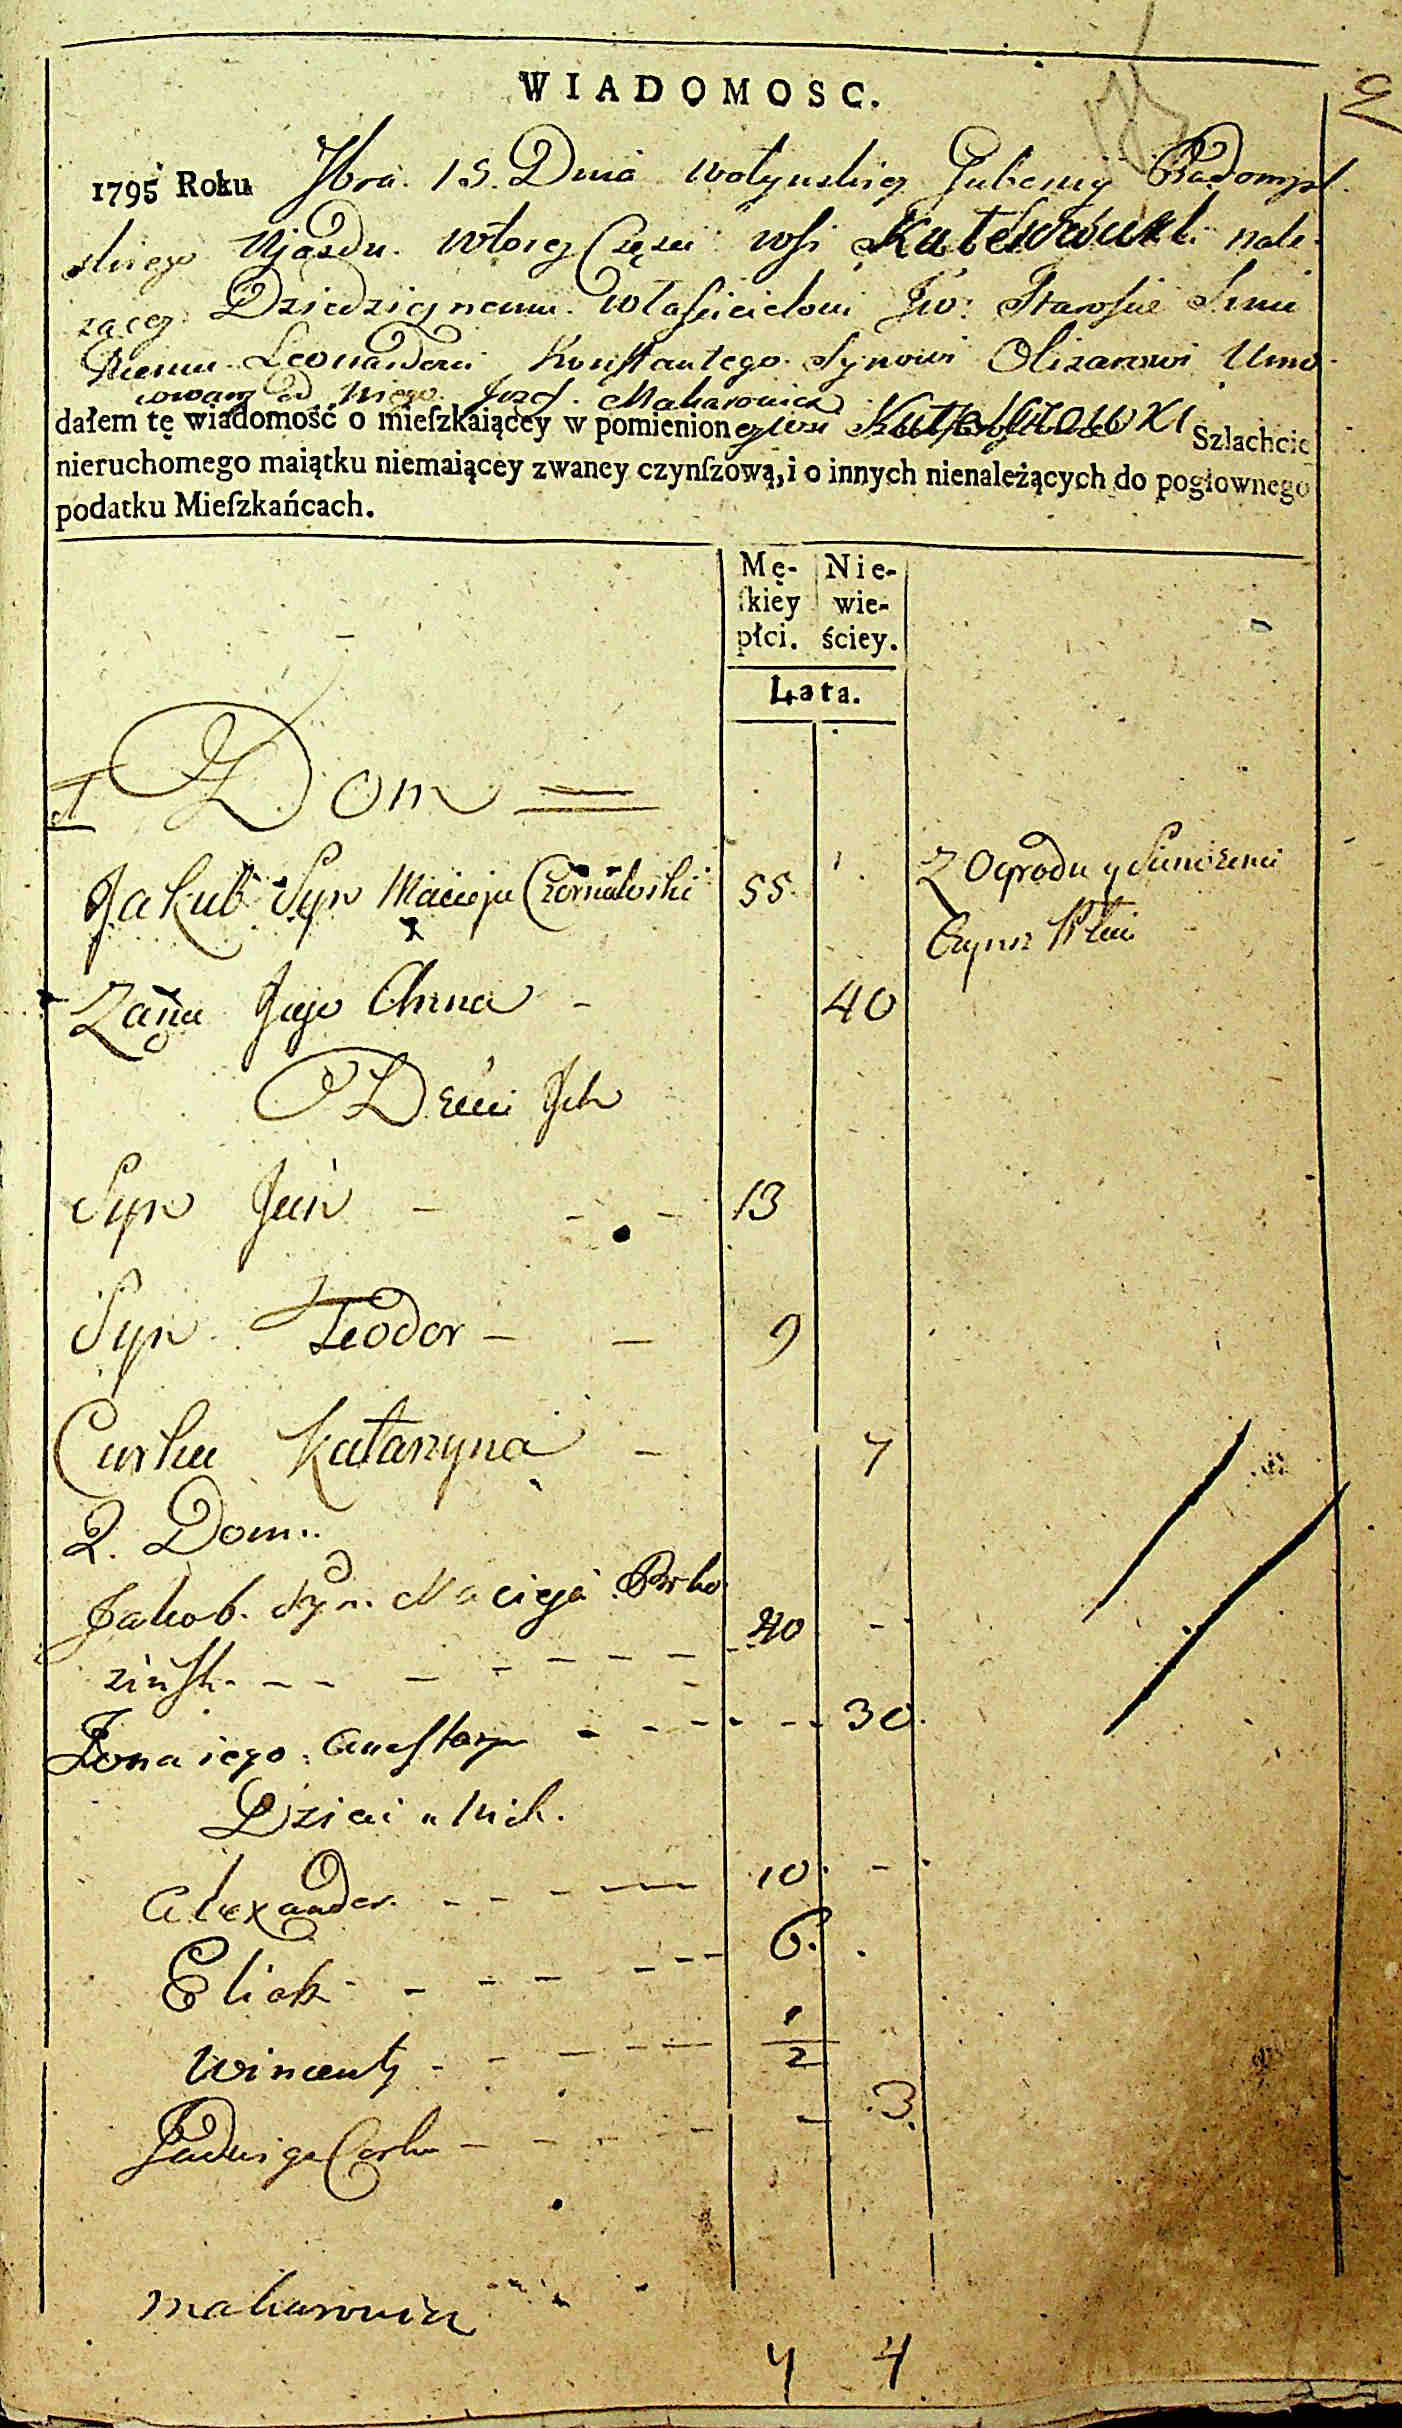 WIADOMOSC.
1795 Roku 7bra. 15. Dnia Wołynskiey Gubernij Radomysl
skiego Ujazdu. wtorey Częsci wsi nale
zącey Dziedzicznemu Włascicielowi Jw: Staroscie
Leonardowi Konstantego Synowi Olizarowi Umo
cowany od Niego Jozef Makarowicz
dałem tę wiadomość o mieſzkaiącey w pomienioney wsi Szlachcie
nieruchomego maiątku niemaiącey zwaney czynſzową, i o innych nienależących do pogłownego
podatku Mieſzkańcach.
Mę- Nie-
ſkiey wie-
płci. ściey.
Lata.
1 Dom
Jakub Syn Macieja 55 Z Ogrodu y
Czynsz
Żona Jego Anna - 40
Dzieci Ich
Syn Jan - - - 13
Syn Teodor - - 9
Curka Katarzyna - 7
2. Dom.
Jakob. Syn. Macieja
40 -
Żona iego 30.
Dzieci u Nich.
Alexander. 10. -
Eliasz 6.
Wincenty 1/2
Jadwiga Corka - 3.
Makarowicz
7 4